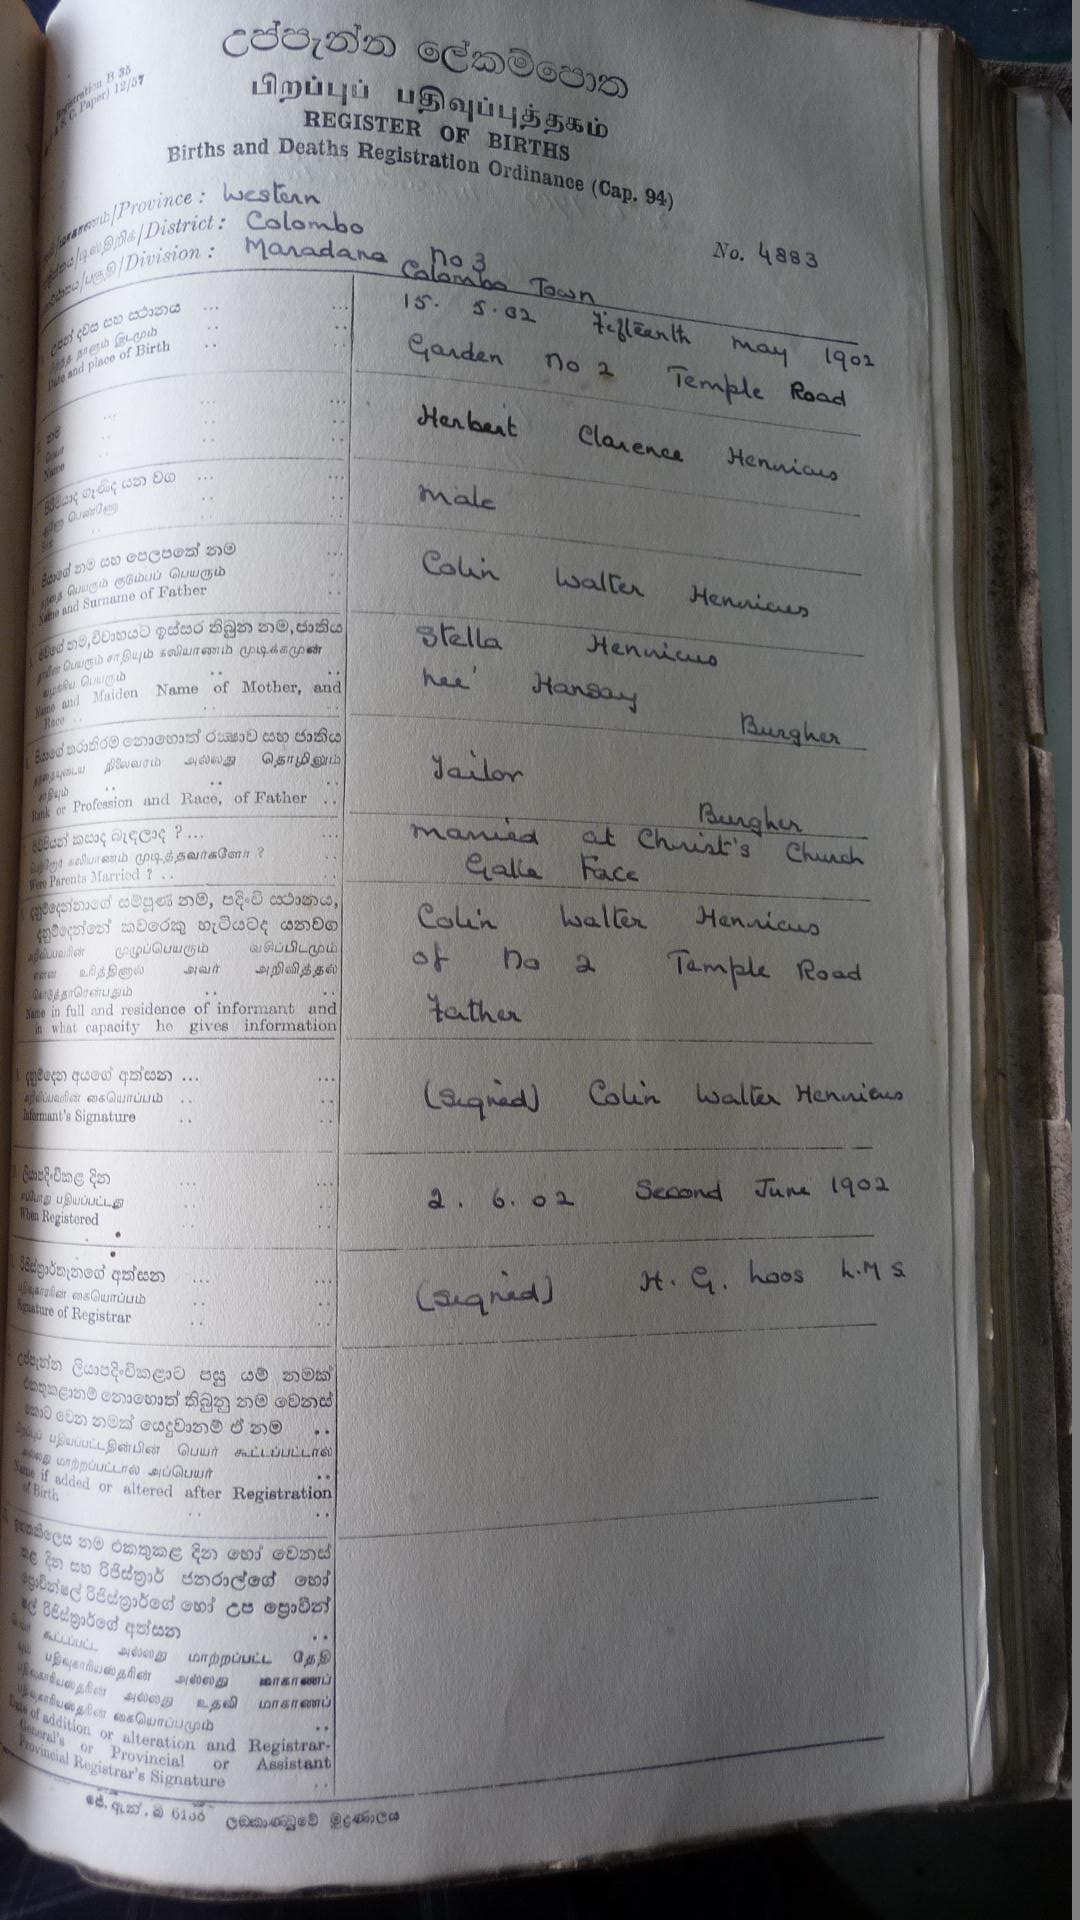 උප්පැන්න ලේකම්පොත
பிறப்புப் பதிவுப்புத்தகம்
REGISTER OF BIRTHS
Births and Deaths Registration Ordinance (Cap. 94)
Registration B 35
C. Paper) 12/57
/Province : Western
/District : Colombo
No. 4883
/Division : Maradana no 3
Colombo Town
උපන් දවස සහ ස්ථානය ... ...
15. 5. 02 Fifteenth may 1902
Date and place of Birth
Garden no 2 Temple Road
නම
Name
Herbert Clarence Henricus
male
පියාගේ නම සහ පෙලපතේ නම ...
பெயரும் குடும்பப் பெயரும்
Name and Surname of Father
Colin Walter Henricus
නම, විවාහයට ඉස්සර තිබුන නම, ජාතිය
Stella Henricus
பெயரும் சாதியும் கலியாணம் முடிக்கமுன்
பெயரும்
Name and Maiden Name of Mother, and
Race
nee' Hansay
Burgher
පියාගේ තරාතිරම නොහොත් රක්ෂාව සහ ජාතිය
நிலைவரம் அல்லது தொழிலும்
சாதியும்
Rank or Profession and Race, of Father
Tailor
Burgher
කසාද බැඳලාද ? ...
கலியாணம் முடித்தவர்களோ ?
Were Parents Married ?
married at Christ's Church
Galle Face
සම්පූර්ණ නම, පදිංචි ස්ථානය,
කවරෙකු හැටියටද යනවග
முழுப்பெயரும் வசிப்பிடமும்
அவர் அறிவித்தல்
Name in full and residence of informant and
in what capacity he gives information
Colin Walter Henricus
of no 2 Temple Road
Father
දනුම්දෙන අයගේ අත්සන ...
கையொப்பம்
Informant's Signature
(signed) Colin Walter Henricus
ලියාපදිංචිකළ දින
பதியப்பட்டது
When Registered
2. 6. 02 Second June 1902
අත්සන
கையொப்பம்
Signature of Registrar
(signed) H. G. Loos L.M S
උප්පැන්න ලියාපදිංචිකළාට පසු යම් නමක්
එකතුකළානම් නොහොත් තිබුනු නම වෙනස්
කොට වෙන නමක් යෙදුවානම් ඒ නම
பெயர் கூட்டப்பட்டால்
அல்லது மாற்றப்பட்டால் அப்பெயர்
Name if added or altered after Registration
of Birth
නම එකතුකළ දින හෝ වෙනස්
කළ දින සහ රිජිස්ත්‍රාර් ජනරාල්ගේ හෝ
ප්‍රොවින්ෂල් රිජිස්ත්‍රාර්ගේ හෝ උප ප්‍රොවින්
ෂල් රිජිස්ත්‍රාර්ගේ අත්සන
கூட்டப்பட்ட அல்லது மாற்றப்பட்ட தேதி
அல்லது மாகாணப்
அல்லது உதவி மாகாணப்
கையொப்பமும்
Date of addition or alteration and Registrar-
General's or Provincial or Assistant
Provincial Registrar's Signature
ලංකාණ්ඩුවේ මුද්‍රණාලය